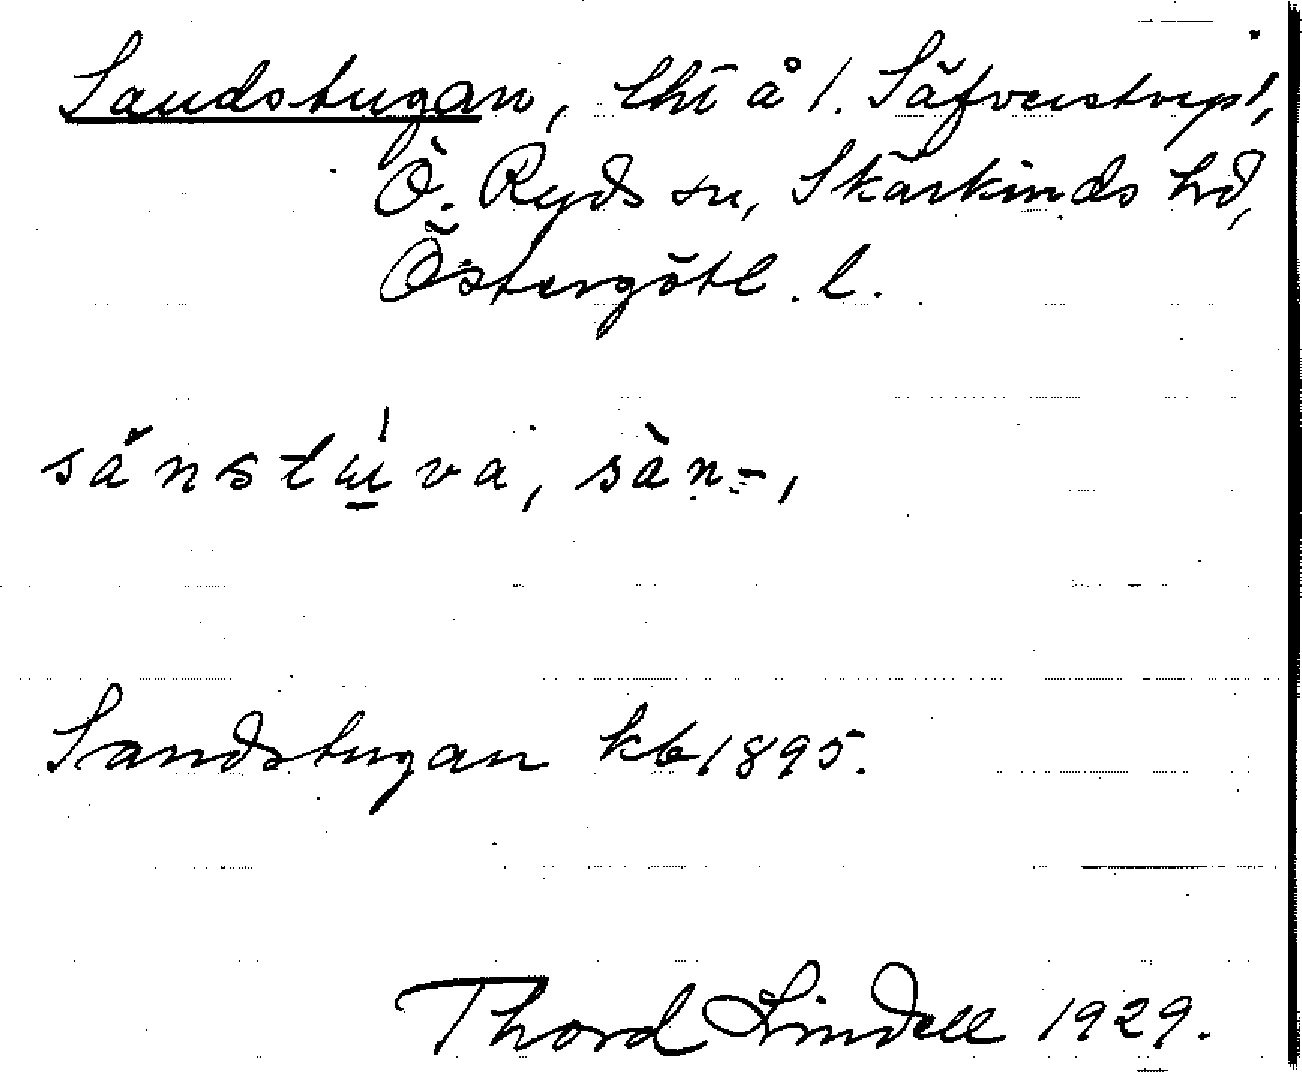 Sandstugan, lht å 1. Säfverstorp,
Ö. Ryds sn, Skärkinds hd,
Östergötl. l.
sånstu̱va, sàn-,
Sandstugan kb 1895.
Thord Lindell 1929.